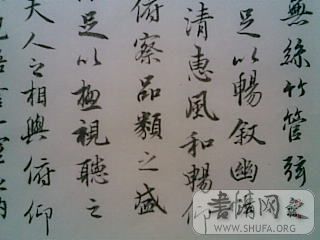 無絲竹管弦之
足以暢敘幽情
清惠風和暢仰
俯察品類之盛
足以極視聽之
夫人之相與俯仰
WWW.SHUFA.ORG